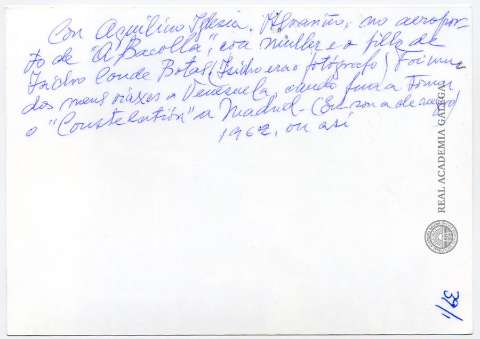 Con Aquilino Iglesia. Alvariño, no aeropor-
to de "A Bacolla", coa muller e o fillo de
Isidro Conde Botas (Isidro era o fotógrafo) Foi nun
dos meus viaxes a Venezuela, cando fun a tomar
o "Constelation" a Madrid - (Eu son a de negro)
1962, ou así
REAL ACADEMIA GALEGA